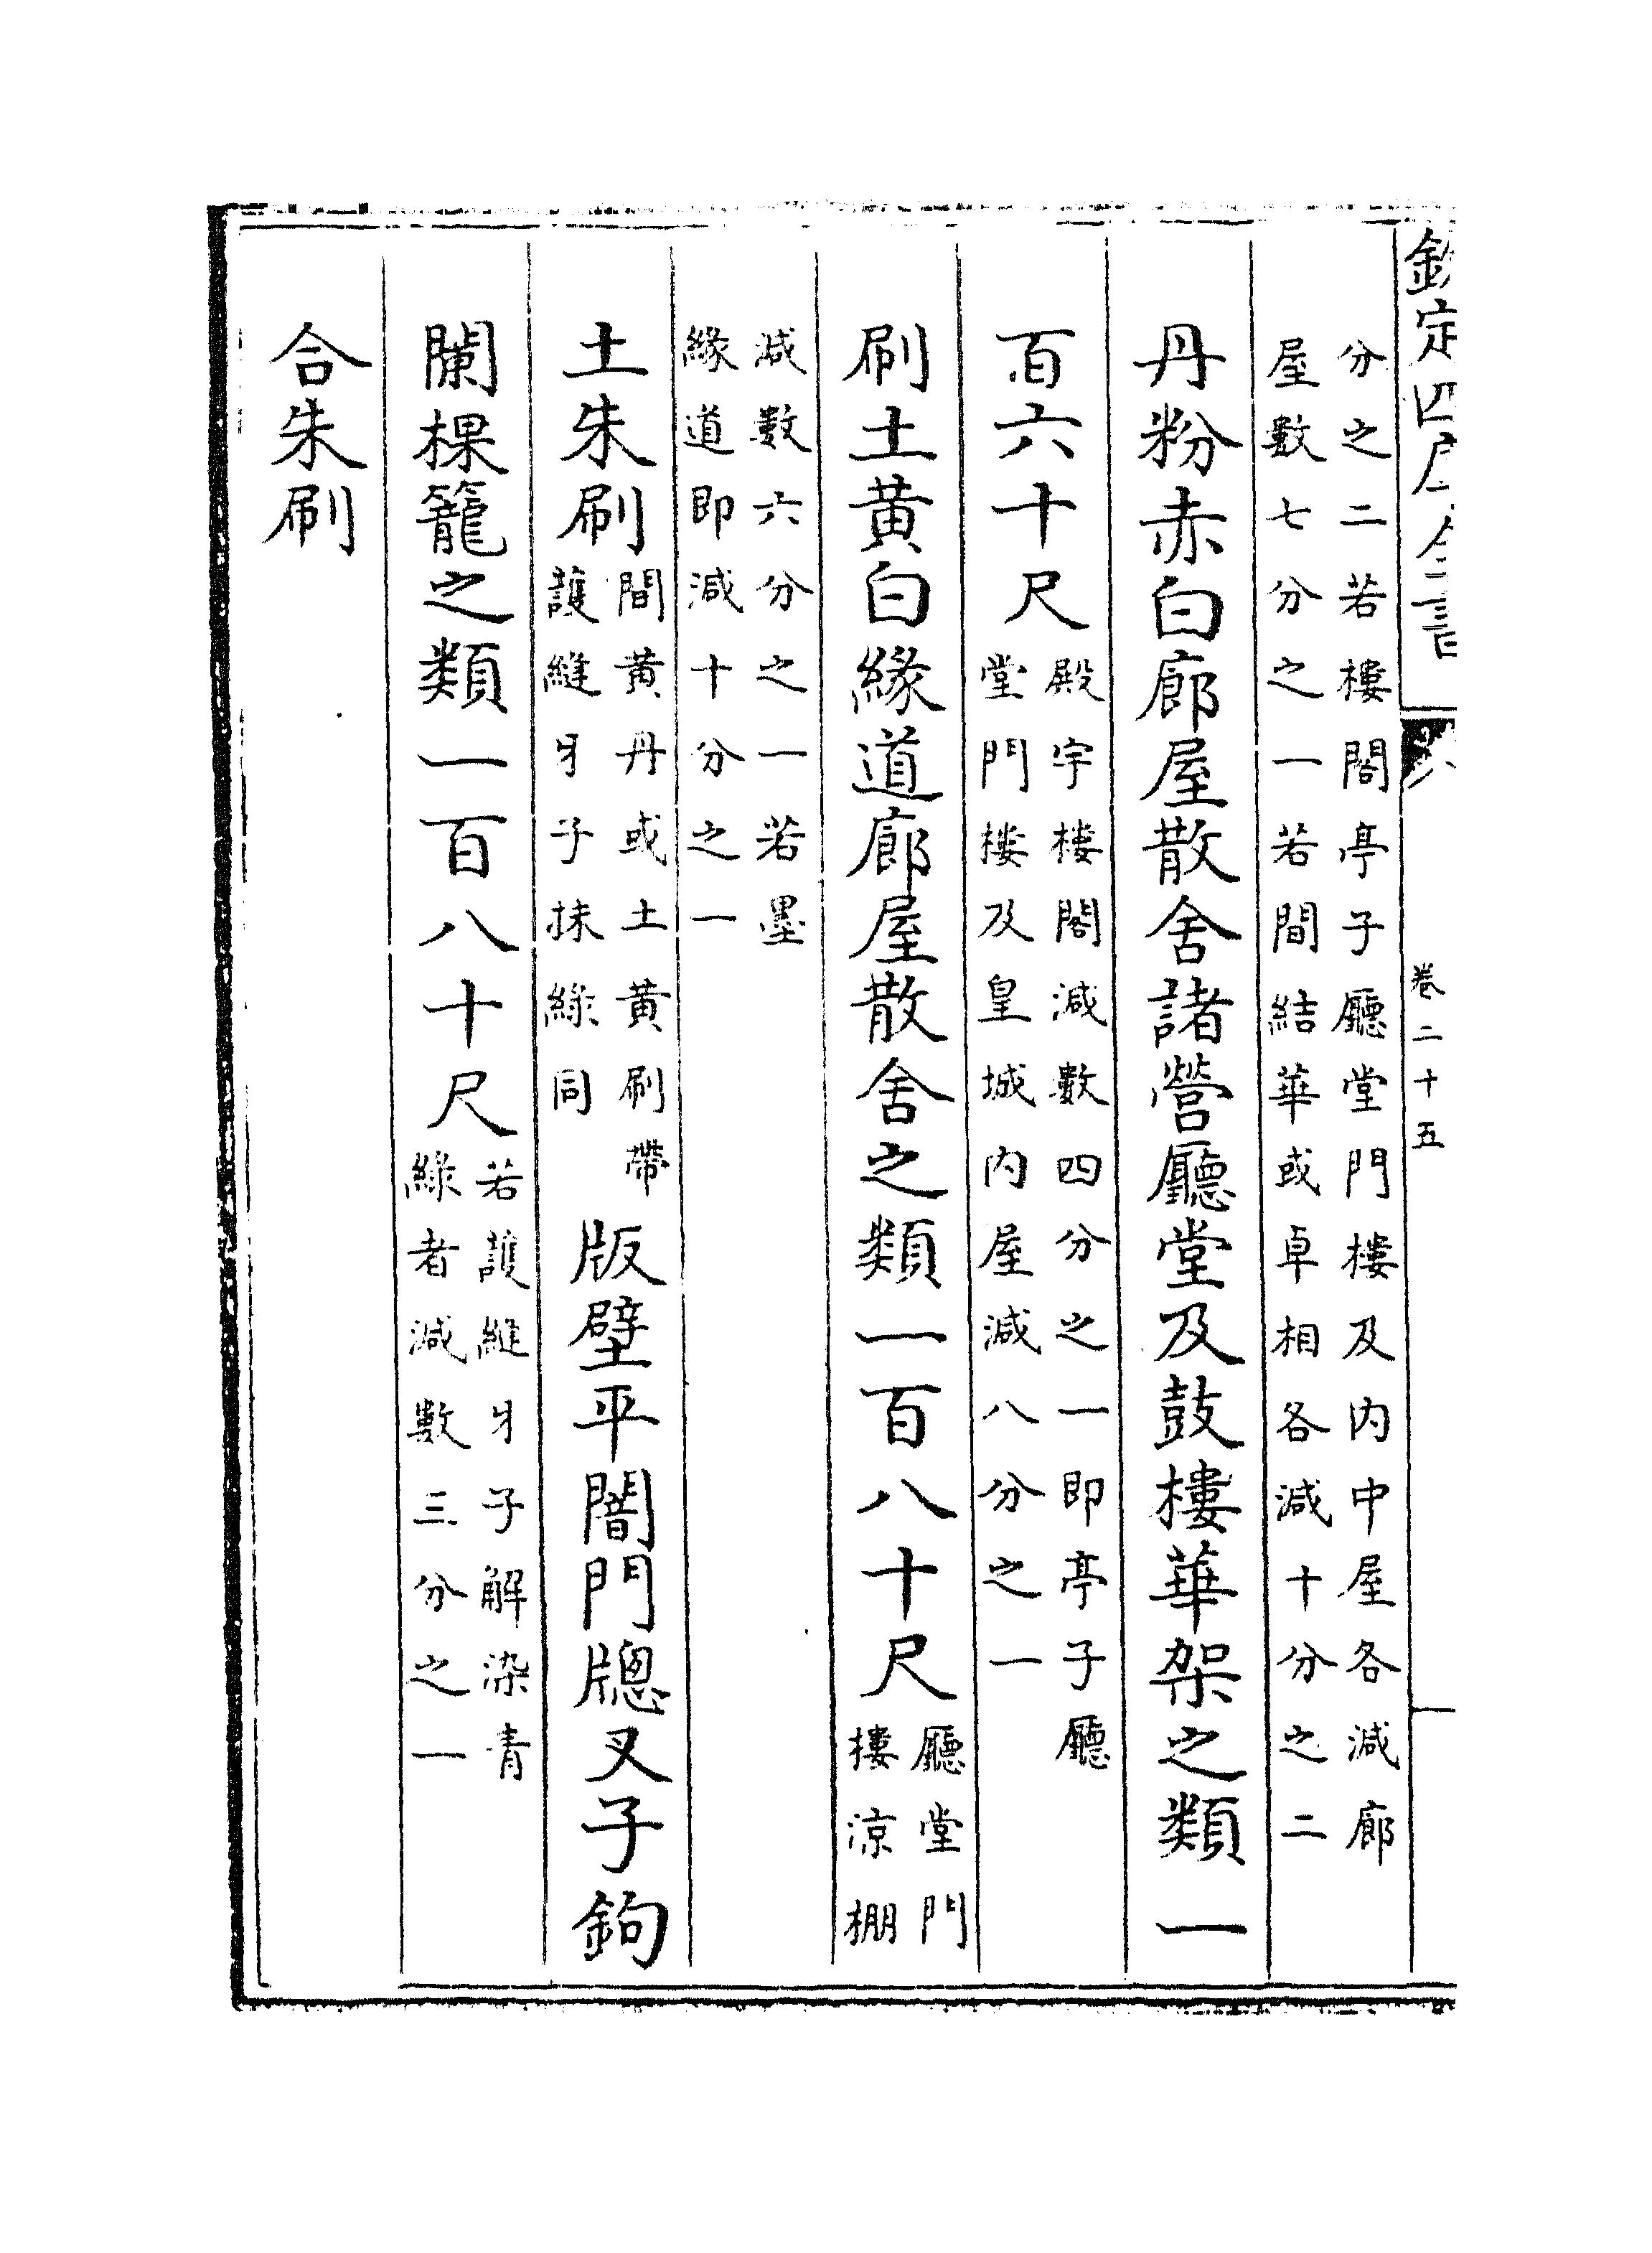 欽定四庫全書
卷二十五
分之二若樓閣亭子廳堂門樓及内中屋各減廊
屋數七分之一若間結華或卓柏各減十分之二
丹粉赤白廊屋散舍諸營廳堂及鼓樓華架之類一
百六十尺
殿宇樓閣減數四分之一即亭子廳
堂門樓及皇城内屋減八分之一
刷土黄白緣道廊屋散舍之類一百八十尺
廳堂門
樓涼棚
減數六分之一若墨
緣道即減十分之一
土朱刷
間黄丹或土黄刷帶
護縫牙子抹綠同
版壁平闇門牕叉子鉤
闌棵籠之類一百八十尺
若護縫牙子解染青
綠者減數三分之一
合朱刷